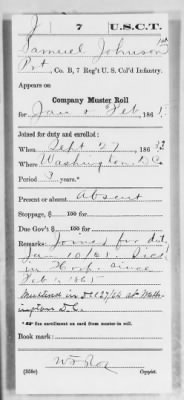 J 7 U.S.C.T.
Samuel Johnson
Pvt, Co. B, 7 Reg't U. S. Col'd Infantry.
Appears on
Company Muster Roll
for Jan & Feb, 1865
Joined for duty and enrolled:
When Sept 27, 186
Where Washington D.C.
Period 3 years.*
Present or absent Absent
Stoppage, $ 100 for
Due Gov't $ 100 for
Remarks: Joined for dut
Jan 10/65. Sick
in Hosp. since
Feb 1865
Mustered in 27/64 at Wash-
ington D.C.
* See enrollment on card from muster-in roll.
Book mark:
(358c) Copyist.